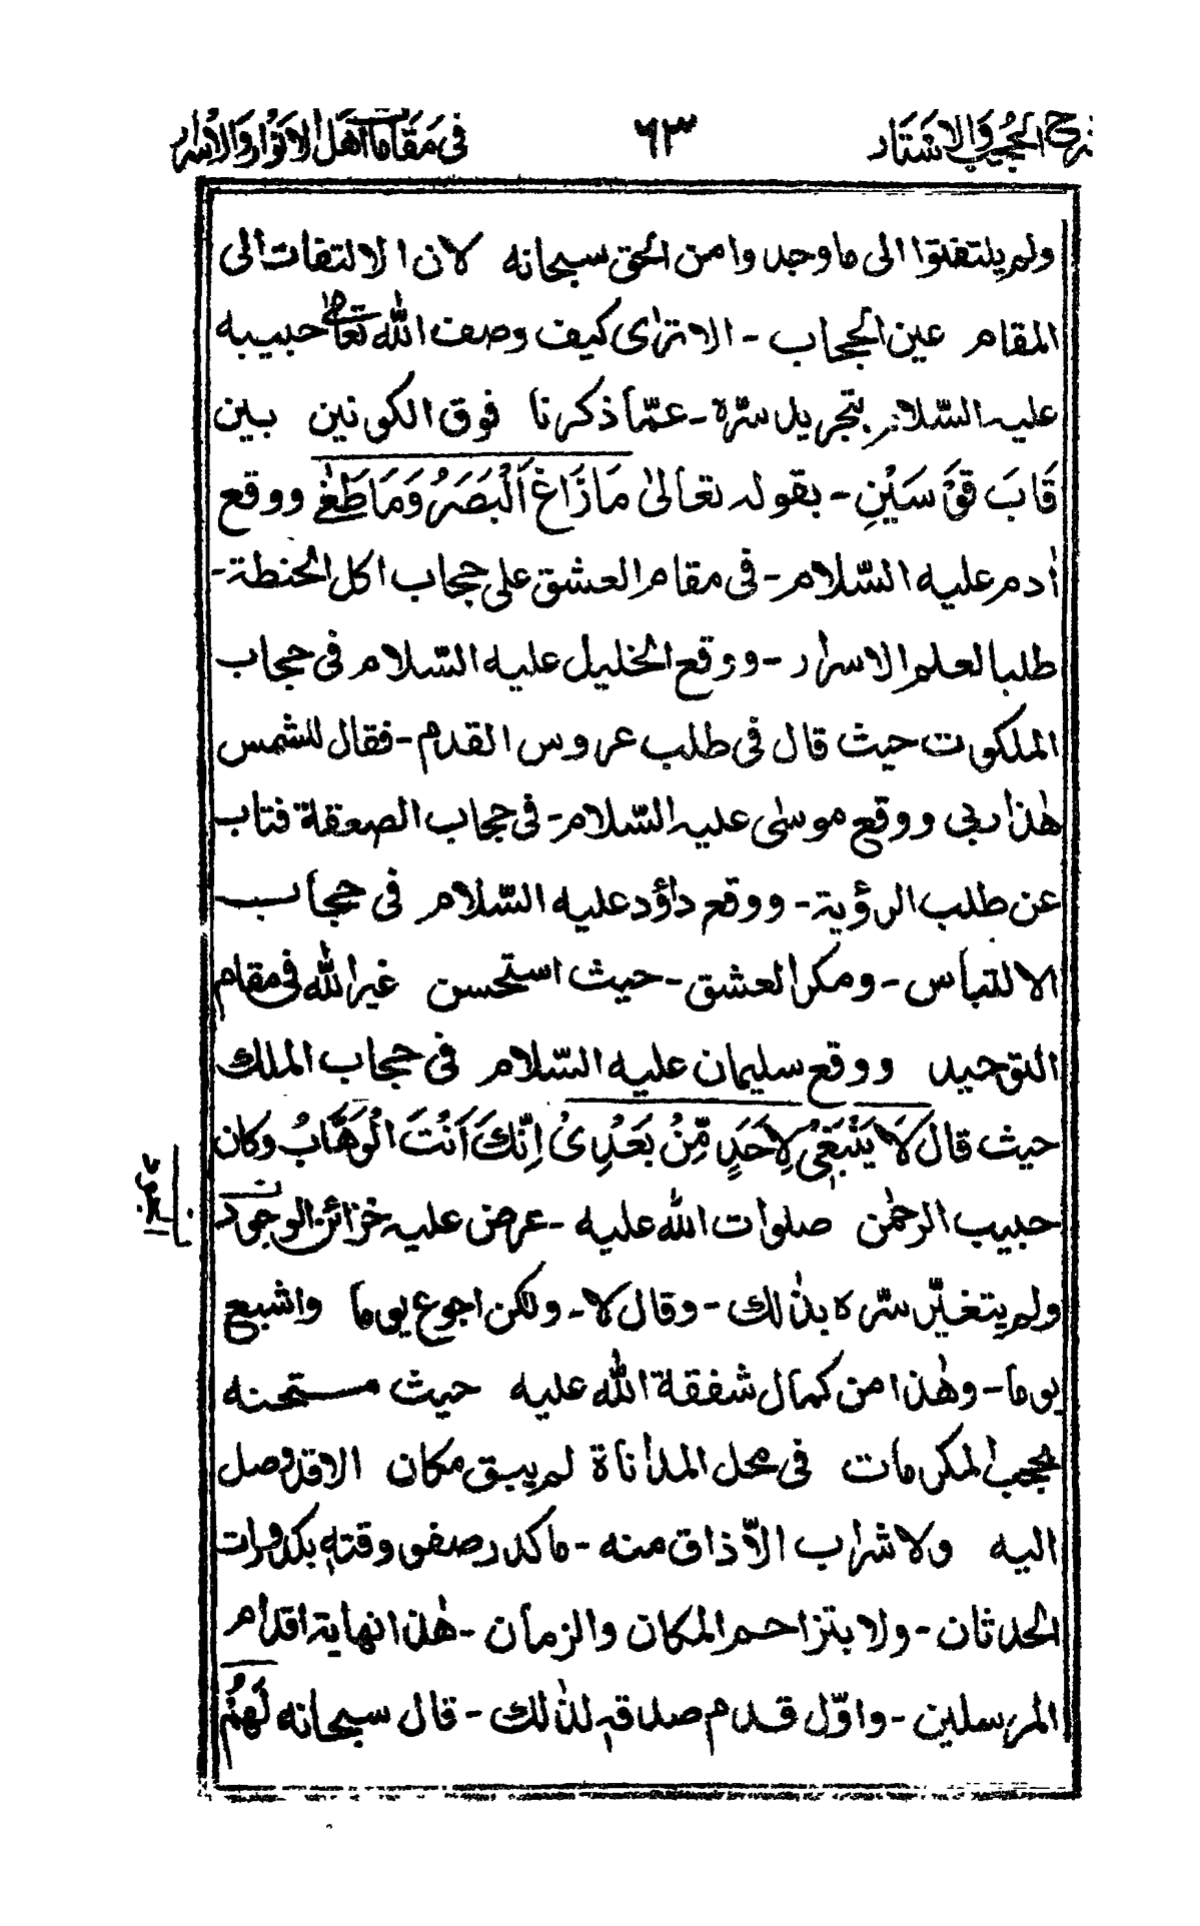 شرح الحجب والاستار ٦٣ فى مقامات اهل الانوار والاسرار
ولم يلتفتوا الى ما وجدوا من الحق سبحانه لان الالتفات الى
المقام عين الحجاب - الا ترٰى كيف وصف الله تعالىٰ حبيبه
عليه السّلام بتجريد سّره - عمّا ذكرنا فوق الكونين بين
قَابَ قَوْسَيْنِ - بقوله تعالىٰ مَا زَاغَ الْبَصَرُ وَمَا طَغٰى ووقع
اٰدم عليه السّلام - فى مقام العشق على حجاب اكل الحنطة -
طلبا لعلم الاسرار - ووقع الخليل عليه السّلام فى حجاب
الملكوت حيث قال فى طلب عروس القدم - فقال للشمس
هٰذا ربى ووقع موسٰى عليه السّلام - فى حجاب الصعقة فتاب
عن طلب الرؤية - ووقع داؤد عليه السّلام فى حجاب
الالتباس - ومكر العشق - حيث استحسن غير الله فى مقام
التوحيد ووقع سليمان عليه السّلام فى حجاب الملك
حيث قال لَا يَنْبَغِىْ لِاَحَدٍ مِّنْ بَعْدِىْ اِنَّكَ اَنْتَ الْوَهَّابُ وكان
حبيب الرحمٰن صلوات الله عليه - عرض عليه خزائن الوجود
ولم يتغيّر سّره بذٰلك - وقال لا - ولكن اجوع يوما واشبع
يوما - وهٰذا من كمال شفقة الله عليه حيث
بحجب المكرمات فى محل المدٰناة لم يبق مكان الا قد وصل
اليه ولا شراب الّا ذاق منه - ما كدر صفو وقته بكدورات
الحدثان - ولا بتزاحم المكان والزمان - هٰذا نهاية اقدام
المرسلين - واوّل قدم صدقه لذٰلك - قال سبحانه لَهُمْ